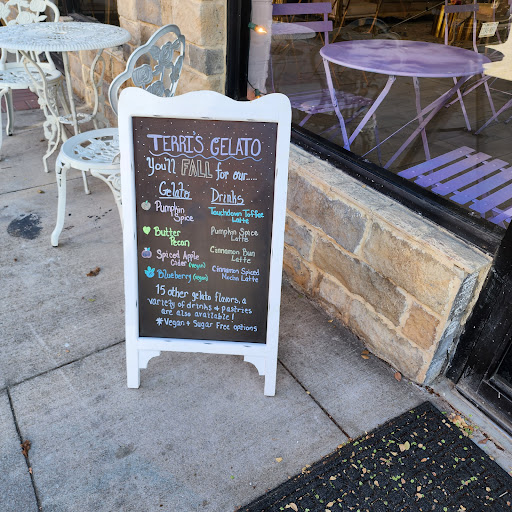 TERRI'S GELATO
You'll FALL for our.....
Gelato
Pumpkin
Spice
Butter
Pecan
Spiced Apple
Cider (vegan)
Blueberry (vegan)
Drinks
Touchdown Toffee
Latte
Pumpkin Spice
Latte
Cinnamon Bun
Latte
Cinnamon Spiced
Mocha Latte
15 other gelato flavors, a
variety of drinks & pastries
are also available!
*Vegan & Sugar Free options